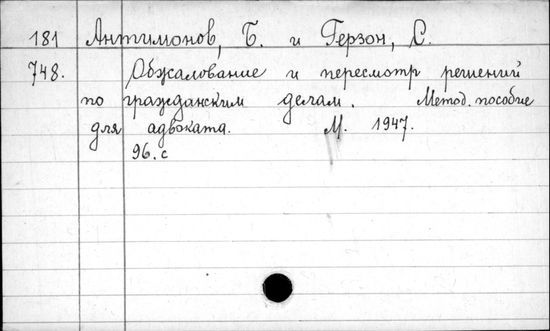 181 Антимонов, Б. и Герзон, С.
748. Обжалование и пересмотр решений
по гражданским делам. Метод. пособие
для адвоката. М. 1947.
96.с